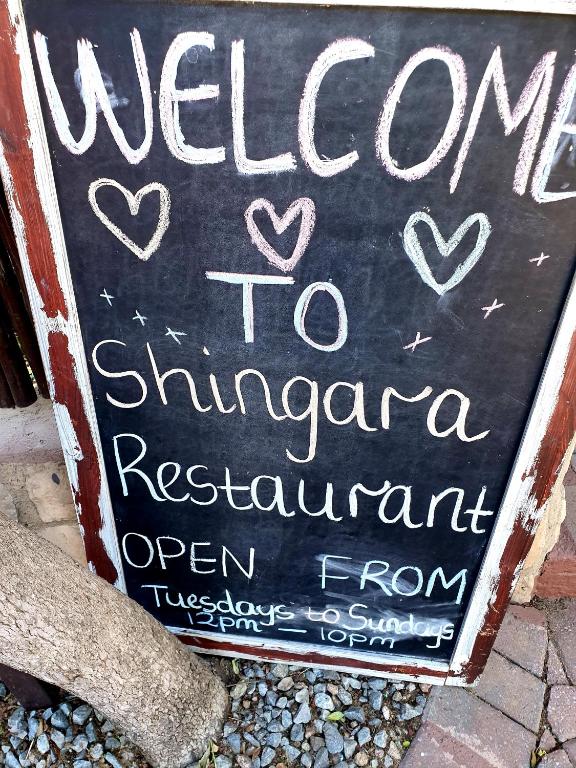 WELCOME
TO
Shingara
Restaurant
OPEN FROM
Tuesdays to Sundays
12pm — 10pm